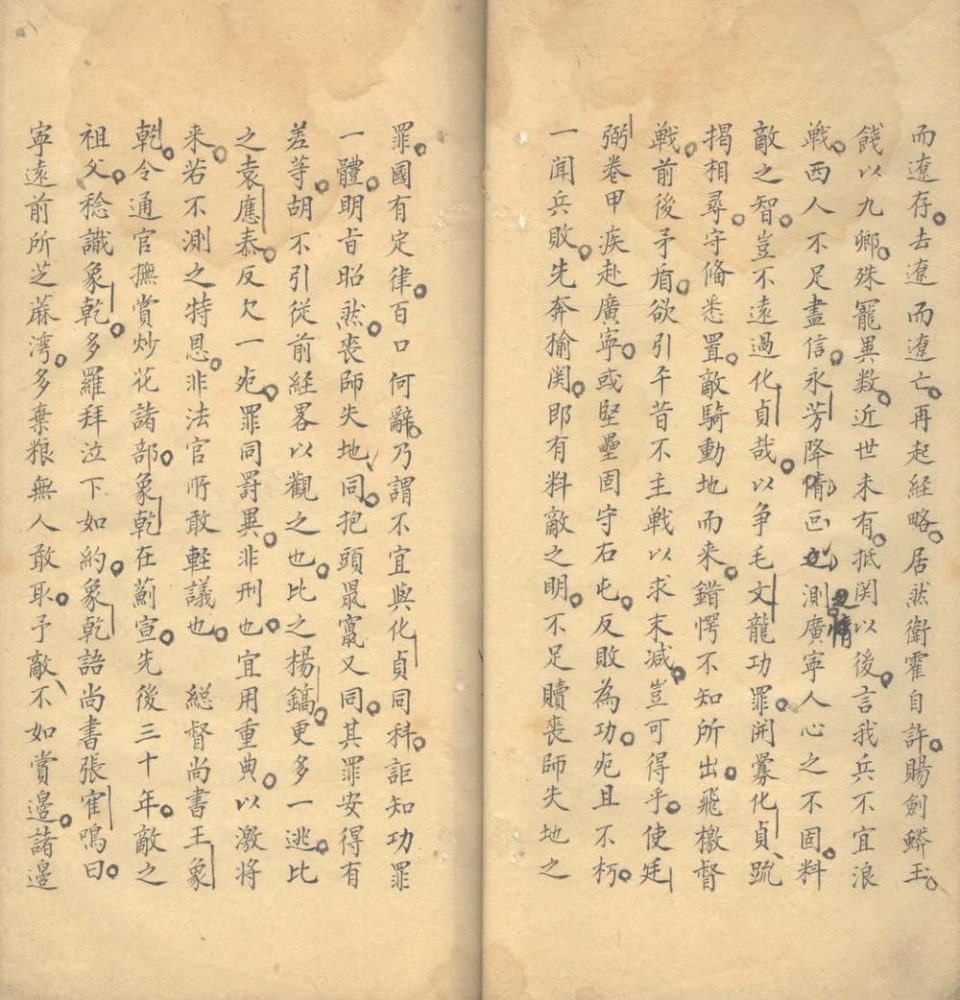 而遼存。去遼而遼亡。再起経略。居然衛霍自許。賜劍蟒玉。
餞以九卿。殊寵異数。近世未有。抵関以後。言我兵不宜浪
戦。西人不足盡信。永芳降情叵測。廣寧人心之不固。料
敵之智。豈不遠過化貞哉。以争毛文龍功罪。開釁化貞。䟽
揭相尋。守俻悉置。敵騎動地而来。錯愕不知所出。飛檄督
戦。前後矛盾。欲引平昔不主戦以求末减。豈可得乎。使廷
弼卷甲疾赴廣寧。或堅壘固守右屯。反敗為功。死且不朽。
一聞兵敗。先奔揄関。郎有料敵之明。不足贖喪師失地之
罪。國有定律。百口何辭。乃謂不宜與化貞同科。詎知功罪
一體。明旨昭然。喪師失地同。抱頭鼠竄又同。其罪安得有
差等。胡不引従前経畧以觀之也。比之楊鎬。更多一逃。比
之袁應泰。反欠一死。罪同罸異。非刑也。宜用重典。以激将
来。若不測之特恩。非法官所敢輕議也。　総督尚書王象
乾。令通官撫賞炒花諸部。象乾在薊宣。先後三十年。敵之
祖父。稔識象乾。多羅拜泣下如約。象乾語尚書張寉鳴曰。
寧遠前所芝蔴湾。多棄粮無人敢取。予敵不如賞邊。諸邊